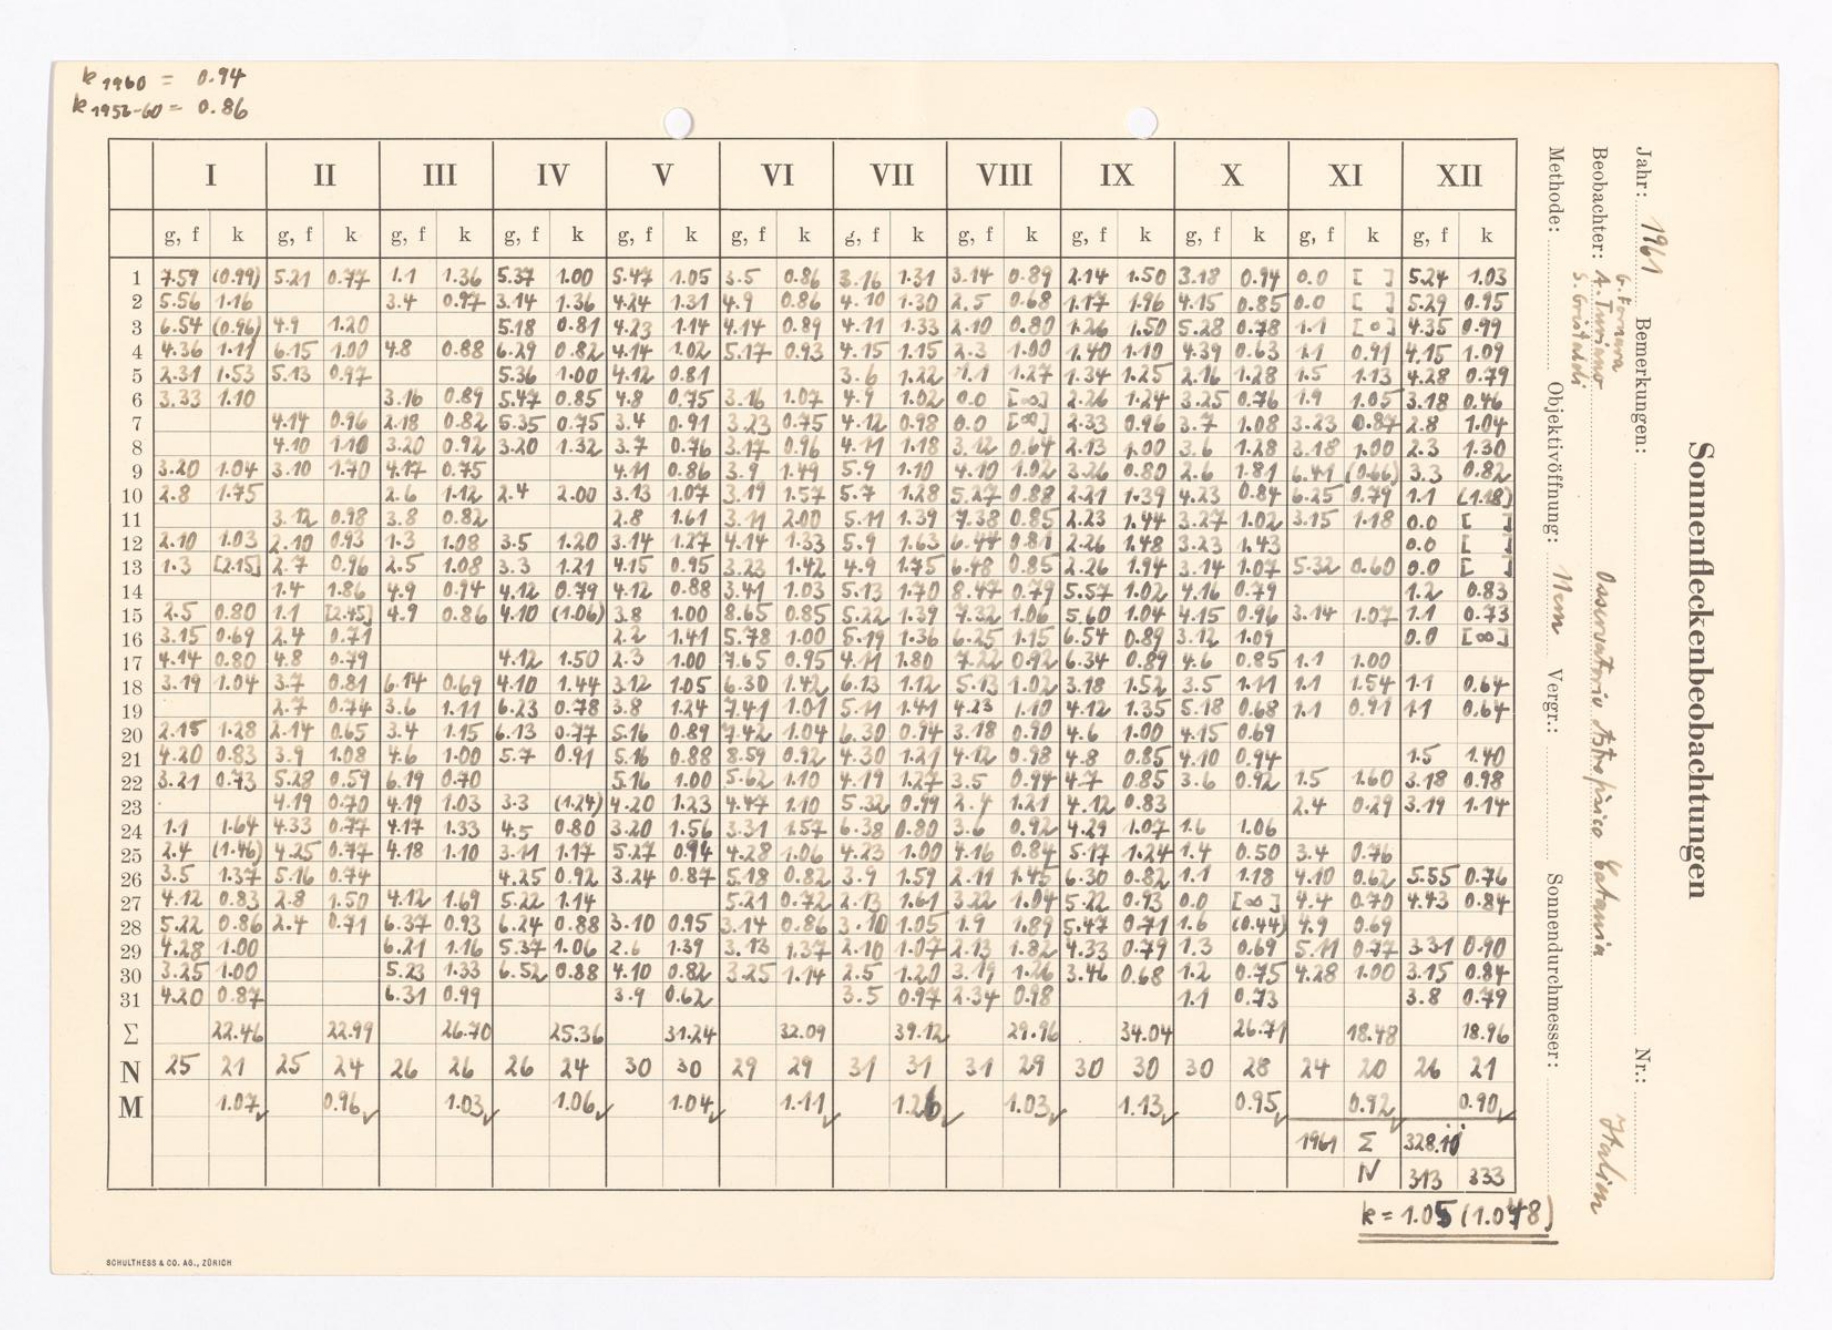 k 1960 = 0.94
k 1952-60 = 0.86
I II III IV V VI VII VIII IX X XI XII
g, f k g, f k g, f k g, f k g, f k g, f k g, f k g, f k g, f k g, f k g, f k g, f k
1 7.59 (0.99) 5.21 0.77 1.1 1.36 5.37 1.00 5.47 1.05 3.5 0.86 3.16 1.31 3.14 0.89 2.14 1.50 3.18 0.94 0.0 [ ] 5.24 1.03
2 5.56 1.16 3.4 0.97 3.14 1.36 4.24 1.31 4.9 0.86 4.10 1.30 2.5 0.68 1.17 1.96 4.15 0.85 0.0 [ ] 5.29 0.95
3 6.54 (0.96) 4.9 1.20 5.18 0.81 4.23 1.14 4.14 0.89 4.11 1.33 2.10 0.80 1.26 1.50 5.28 0.78 1.1 [0] 4.35 0.99
4 4.36 1.11 6.15 1.00 4.8 0.88 6.29 0.82 4.14 1.02 5.17 0.93 4.15 1.15 2.3 1.00 1.40 1.10 4.39 0.63 1.1 0.91 4.15 1.09
5 2.31 1.53 5.13 0.97 5.36 1.00 4.12 0.81 3.6 1.22 1.1 1.27 1.34 1.25 2.16 1.28 1.5 1.13 4.28 0.79
6 3.33 1.10 3.16 0.89 5.47 0.85 4.8 0.75 3.16 1.07 4.9 1.02 0.0 [∞] 2.26 1.24 3.25 0.76 1.9 1.05 3.18 0.46
7 4.14 0.96 2.18 0.82 5.35 0.75 3.4 0.91 3.23 0.75 4.12 0.98 0.0 [∞] 2.33 0.96 3.7 1.08 3.23 0.87 2.8 1.04
8 4.10 1.10 3.20 0.92 3.20 1.32 3.7 0.76 3.17 0.96 4.11 1.18 3.12 0.64 2.13 1.00 3.6 1.28 3.18 1.00 2.3 1.30
9 3.20 1.04 3.10 1.70 4.17 0.75 4.11 0.86 3.9 1.49 5.9 1.10 4.10 1.02 3.26 0.80 2.6 1.81 6.41 (0.66) 3.3 0.82
10 2.8 1.75 2.6 1.12 2.4 2.00 3.13 1.07 3.19 1.57 5.7 1.28 5.27 0.88 2.21 1.39 4.23 0.84 6.25 0.79 1.1 (1.18)
11 3.12 0.98 3.8 0.82 2.8 1.61 3.11 2.00 5.11 1.39 7.38 0.85 2.23 1.44 3.27 1.02 3.15 1.18 0.0 [ ]
12 2.10 1.03 2.10 0.93 1.3 1.08 3.5 1.20 3.14 1.27 4.14 1.33 5.9 1.63 6.44 0.81 2.26 1.48 3.23 1.43 0.0 [ ]
13 1.3 [2.15] 2.7 0.96 2.5 1.08 3.3 1.21 4.15 0.95 3.23 1.42 4.9 1.75 6.48 0.85 2.26 1.94 3.14 1.07 5.32 0.60 0.0 [ ]
14 1.4 1.86 4.9 0.94 4.12 0.79 4.12 0.88 3.41 1.03 5.13 1.70 8.47 0.79 5.57 1.02 4.16 0.79 1.2 0.83
15 2.5 0.80 1.1 [2.45] 4.9 0.86 4.10 (1.06) 3.8 1.00 8.65 0.85 5.22 1.39 7.32 1.06 5.60 1.04 4.15 0.96 3.14 1.07 1.1 0.73
16 3.15 0.69 2.4 0.71 2.2 1.41 5.78 1.00 5.19 1.36 6.25 1.15 6.54 0.89 3.12 1.09 0.0 [∞]
17 4.14 0.80 4.8 0.79 4.12 1.50 2.3 1.00 7.65 0.95 4.11 1.80 7.22 0.92 6.34 0.89 4.6 0.85 1.1 1.00
18 3.19 1.04 3.7 0.81 6.14 0.69 4.10 1.44 3.12 1.05 6.30 1.42 6.13 1.12 5.13 1.02 3.18 1.52 3.5 1.11 1.1 1.54 1.1 0.64
19 2.7 0.74 3.6 1.11 6.23 0.78 3.8 1.24 7.41 1.01 5.11 1.41 4.23 1.10 4.12 1.35 5.18 0.68 1.1 0.91 1.1 0.64
20 2.15 1.28 2.14 0.65 3.4 1.15 6.13 0.77 5.16 0.89 7.42 1.04 6.30 0.94 3.18 0.90 4.6 1.00 4.15 0.69
21 4.20 0.83 3.9 1.08 4.6 1.00 5.7 0.91 5.16 0.88 8.59 0.92 4.30 1.21 4.12 0.98 4.8 0.85 4.10 0.94 1.5 1.40
22 3.21 0.73 5.28 0.59 6.19 0.70 5.16 1.00 5.62 1.10 4.19 1.27 3.5 0.94 4.7 0.85 3.6 0.92 1.5 1.60 3.18 0.98
23 4.19 0.70 4.19 1.03 3.3 (1.24) 4.20 1.23 4.47 1.10 5.32 0.99 2.4 1.21 4.12 0.83 2.4 0.29 3.19 1.14
24 1.1 1.64 4.33 0.77 4.17 1.33 4.5 0.80 3.20 1.56 3.31 1.57 6.38 0.80 3.6 0.92 4.29 1.07 1.6 1.06
25 2.4 (1.46) 4.25 0.77 4.18 1.10 3.11 1.17 5.27 0.94 4.28 1.06 4.23 1.00 4.16 0.84 5.17 1.24 1.4 0.50 3.4 0.76
26 3.5 1.37 5.16 0.74 4.25 0.92 3.24 0.87 5.18 0.82 3.9 1.59 2.11 1.45 6.30 0.82 1.1 1.18 4.10 0.62 5.55 0.76
27 4.12 0.83 2.8 1.50 4.12 1.69 5.22 1.14 5.21 0.72 2.13 1.61 3.22 1.04 5.22 0.93 0.0 [∞] 4.4 0.70 4.43 0.84
28 5.22 0.86 2.4 0.71 6.37 0.93 6.24 0.88 3.10 0.95 3.14 0.86 3.10 1.05 1.9 1.89 5.47 0.71 1.6 (0.44) 4.9 0.69
29 4.28 1.00 6.21 1.16 5.37 1.06 2.6 1.39 3.13 1.37 2.10 1.07 2.13 1.82 4.33 0.79 1.3 0.69 5.11 0.77 3.31 0.90
30 3.25 1.00 5.23 1.33 6.52 0.88 4.10 0.82 3.25 1.14 2.5 1.20 3.19 1.26 3.46 0.68 1.2 0.75 4.28 1.00 3.15 0.84
31 4.20 0.87 6.31 0.99 3.9 0.62 3.5 0.97 2.34 0.98 1.1 0.73 3.8 0.79
Σ 22.46 22.99 26.70 25.36 31.24 32.09 39.12 29.96 34.04 26.71 18.48 18.96
N 25 21 25 24 26 26 26 24 30 30 29 29 31 31 31 29 30 30 30 28 24 20 26 21
M 1.07 0.96 1.03 1.06 1.04 1.11 1.26 1.03 1.13 0.95 0.92 0.90
1961 Σ 328.10
N 313 333
k = 1.05 (1.048)
SCHULTHESS & CO. AG., ZÜRICH
Sonnenfleckenbeobachtungen
Jahr: 1961 Bemerkungen: Nr.:
Beobachter: G. Fornara
A. Turriano
S. Cristaldi
Osservatorio Astrofisico Catania Italien
Methode: Objektivöffnung: 11 cm Vergr.: Sonnendurchmesser: